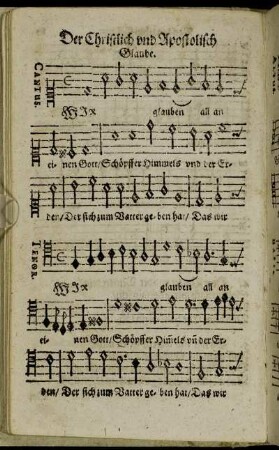 Der Christlich vnd Apostolisch
Glaube.
CANTUS.
WIR glauben all an
ei- nen Gott/ Schöpffer Himmels vnd der Er-
den/ Der sich zum Vatter ge- ben hat/ Das wir
TENOR.
WIR glauben all an
ei- nen Gott/ Schöpffer Him̃els vñ der Er-
den/ Der sich zum Vatter ge- ben hat/ Daß wir